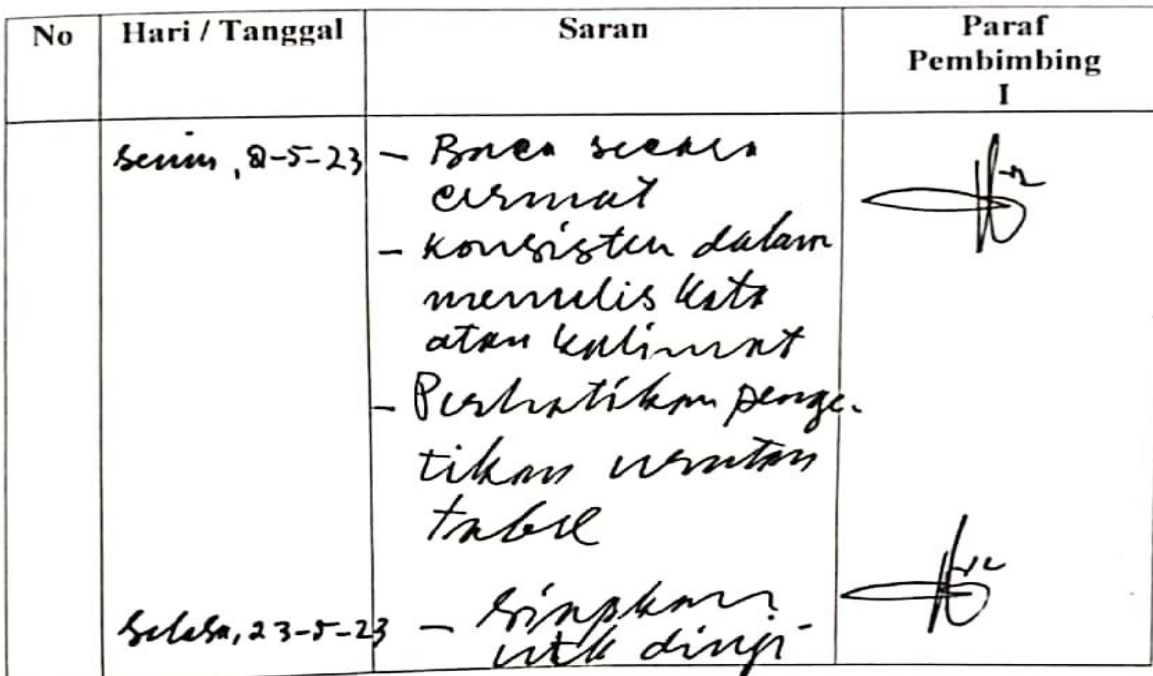 No Hari / Tanggal Saran Paraf
Pembimbing
I
Senin, 8-5-23 - Baca secara
cermat
- Konsisten dalam
menulis kata
atau kalimat
- Perhatikan penge-
tikan urutan
tabel
Selasa, 23-5-23 - Siapkan
utk diuji